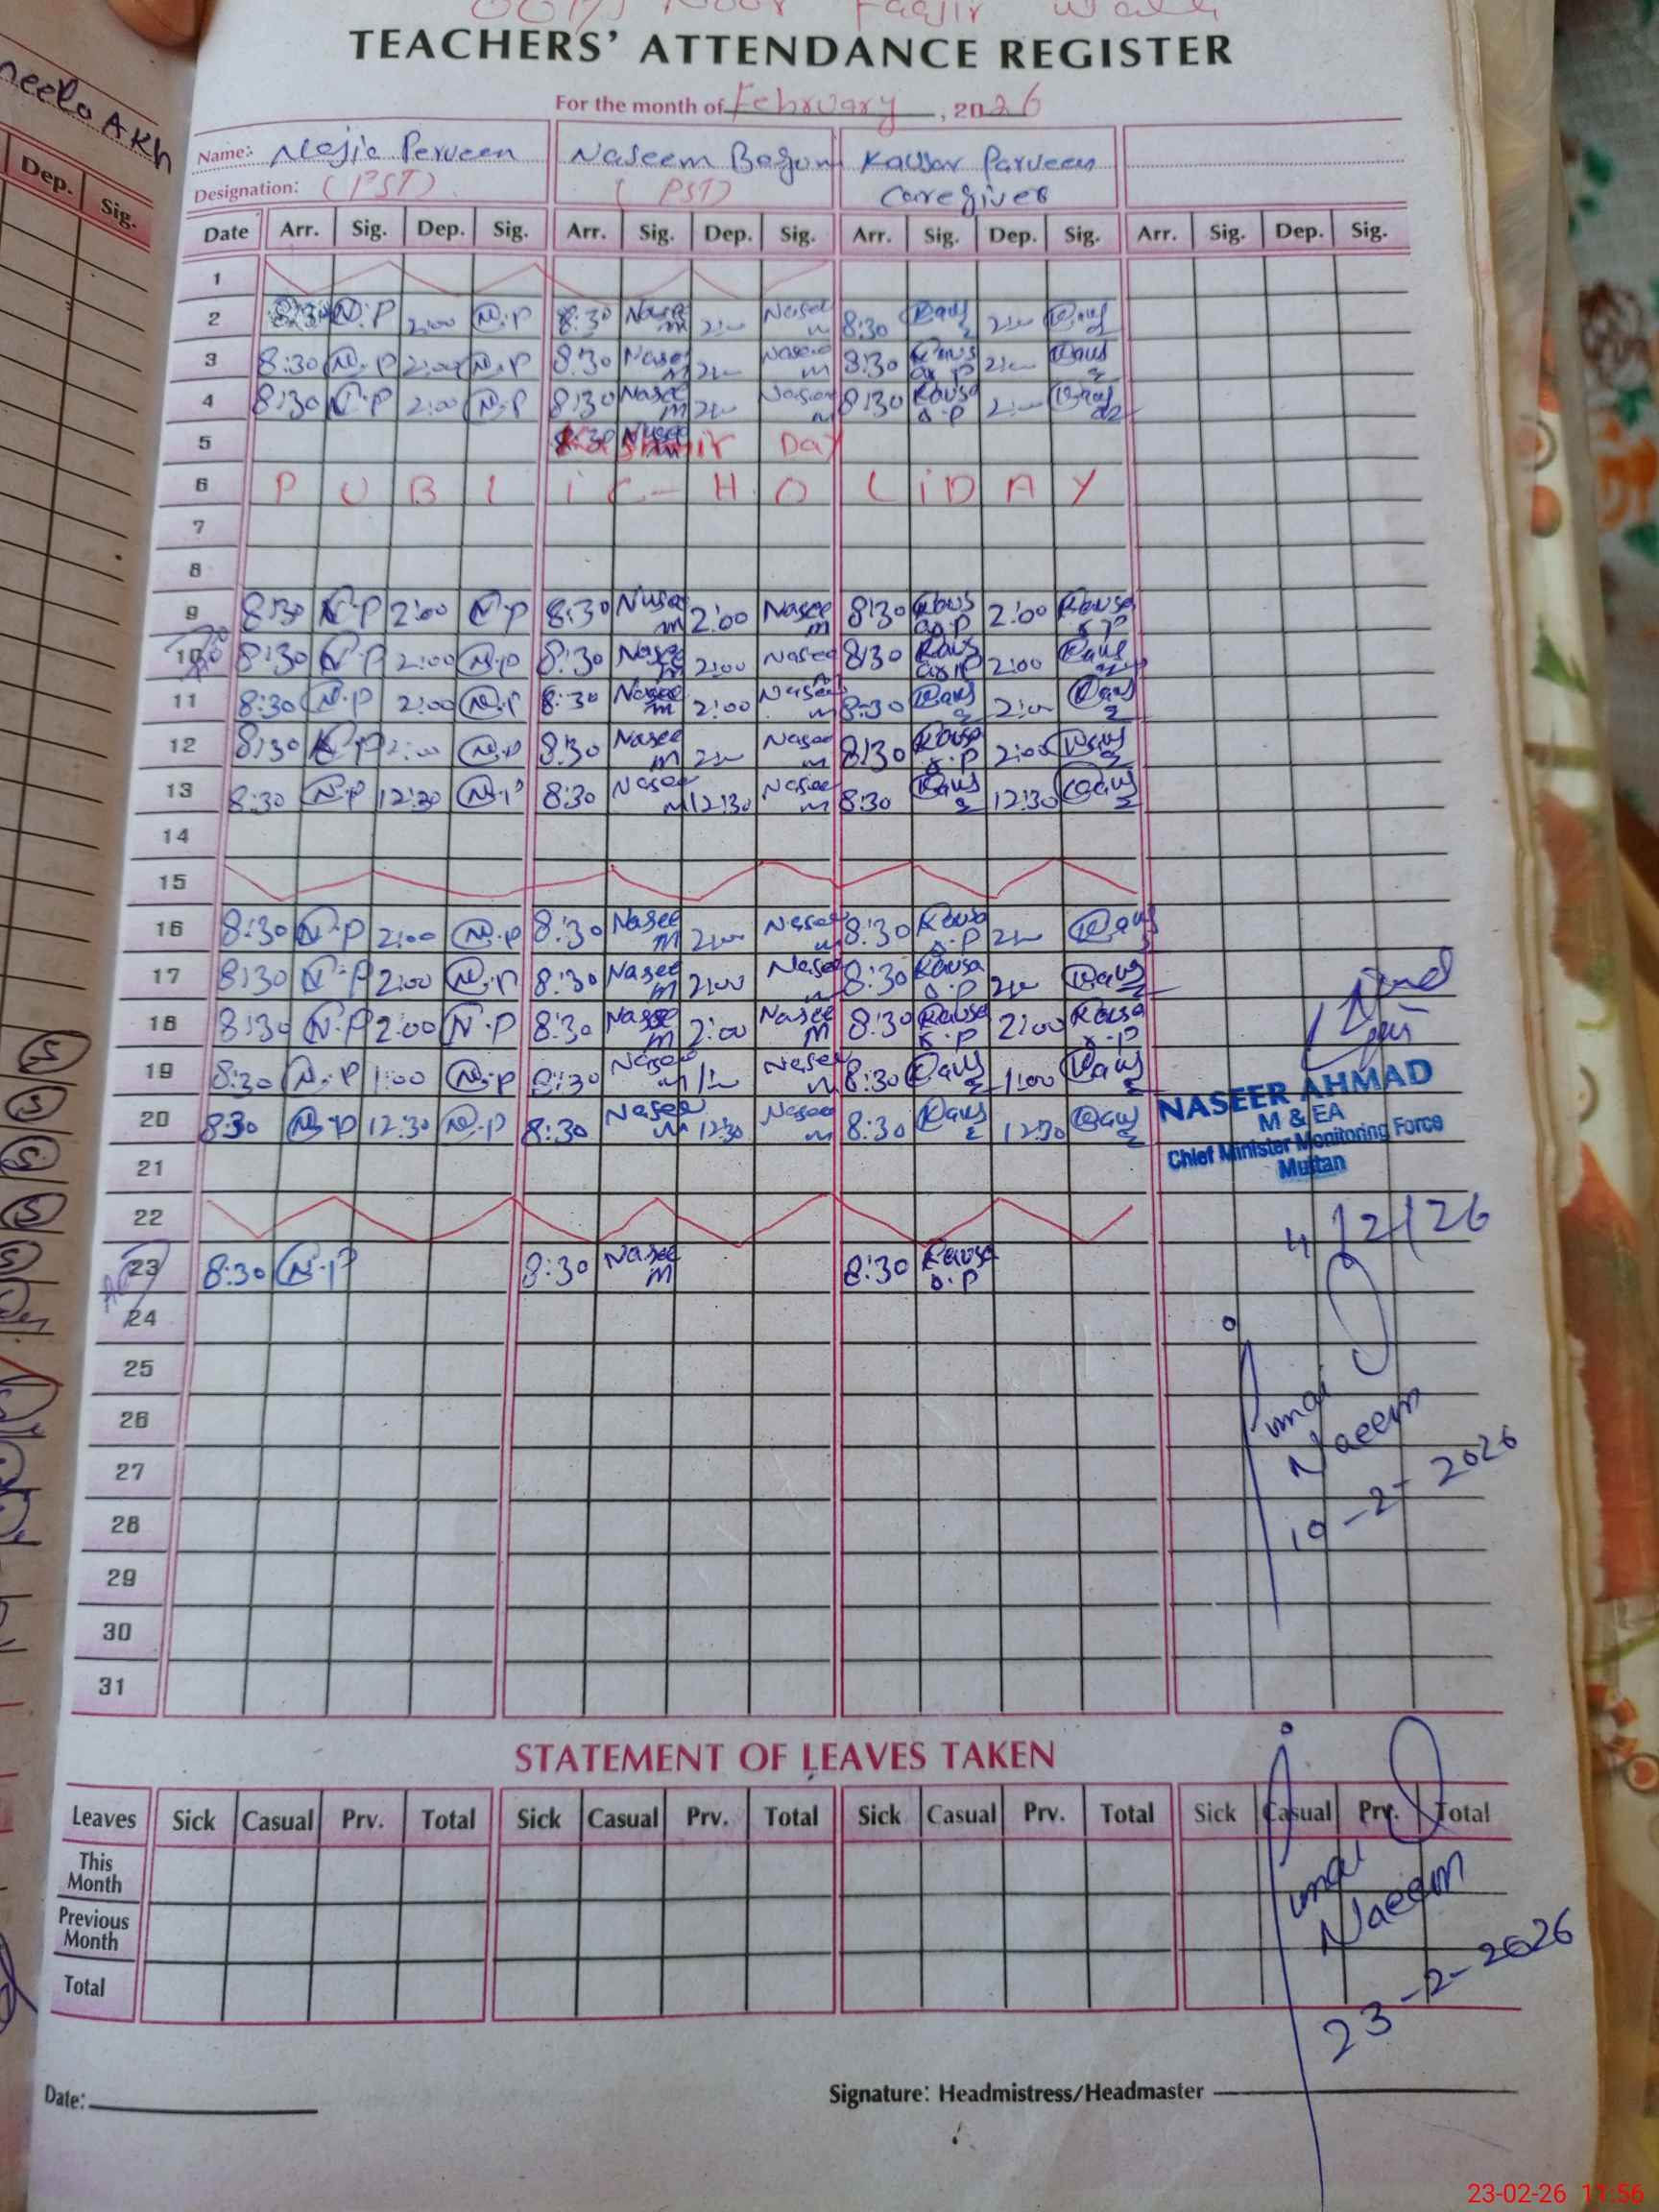 TEACHERS' ATTENDANCE REGISTER
For the month of February, 2026
neela Akh
Dep. Sig.
Name: Najia Perveen Naseem Begum Kausar Parveen
Designation: (PST) (PST) Caregiver
Date Arr. Sig. Dep. Sig. Arr. Sig. Dep. Sig. Arr. Sig. Dep. Sig. Arr. Sig. Dep. Sig.
1
2 8:30 N.P 2:00 N.P 8:30 Naseem 2:00 Naseem 8:30 2:00
3 8:30 N.P 2:00 N.P 8:30 Naseem 2:00 Naseem 8:30 2:00
4 8:30 N.P 2:00 N.P 8:30 Naseem 2:00 Naseem 8:30 Kausar.P 2:00
5 Kashmir Day
6 PUBLIC - HOLiDAY
7
8
9 8:30 N.P 2:00 N.P 8:30 Naseem 2:00 Naseem 8:30 Kausar.P 2:00 Kausar.P
10 8:30 N.P 2:00 N.P 8:30 Naseem 2:00 Naseem 8:30 Kausar.P 2:00
11 8:30 N.P 2:00 N.P 8:30 Naseem 2:00 Naseem 8:30 2:00
12 8:30 N.P 2:00 N.P 8:30 Naseem 2:00 Naseem 8:30 Kausar.P 2:00
13 8:30 N.P 12:30 N.P 8:30 Naseem 12:30 Naseem 8:30 12:30
14
15
16 8:30 N.P 2:00 N.P 8:30 Naseem 2:00 Naseem 8:30 Kausar.P 2:00
17 8:30 N.P 2:00 N.P 8:30 Naseem 2:00 Naseem 8:30 Kausar.P 2:00
18 8:30 N.P 2:00 N.P 8:30 Naseem 2:00 Naseem 8:30 Kausar.P 2:00 Kausar.P
19 8:30 N.P 1:00 N.P 8:30 Naseem 1:00 Naseem 8:30 1:00
20 8:30 N.P 12:30 N.P 8:30 Naseem 12:30 Naseem 8:30 12:30
NASEER AHMAD
M & EA
Chief Minister Monitoring Force
Multan
21
22
4/2/26
23 8:30 N.P 8:30 Naseem 8:30 Kausar.P
24
25
26
Naeem
27
10-2-2026
28
29
30
31
STATEMENT OF LEAVES TAKEN
Leaves Sick Casual Prv. Total Sick Casual Prv. Total Sick Casual Prv. Total Sick Casual Prv. Total
This Month
Previous Month
Naeem
Total
23-2-2026
Date:
Signature: Headmistress/Headmaster
23-02-26 11:56